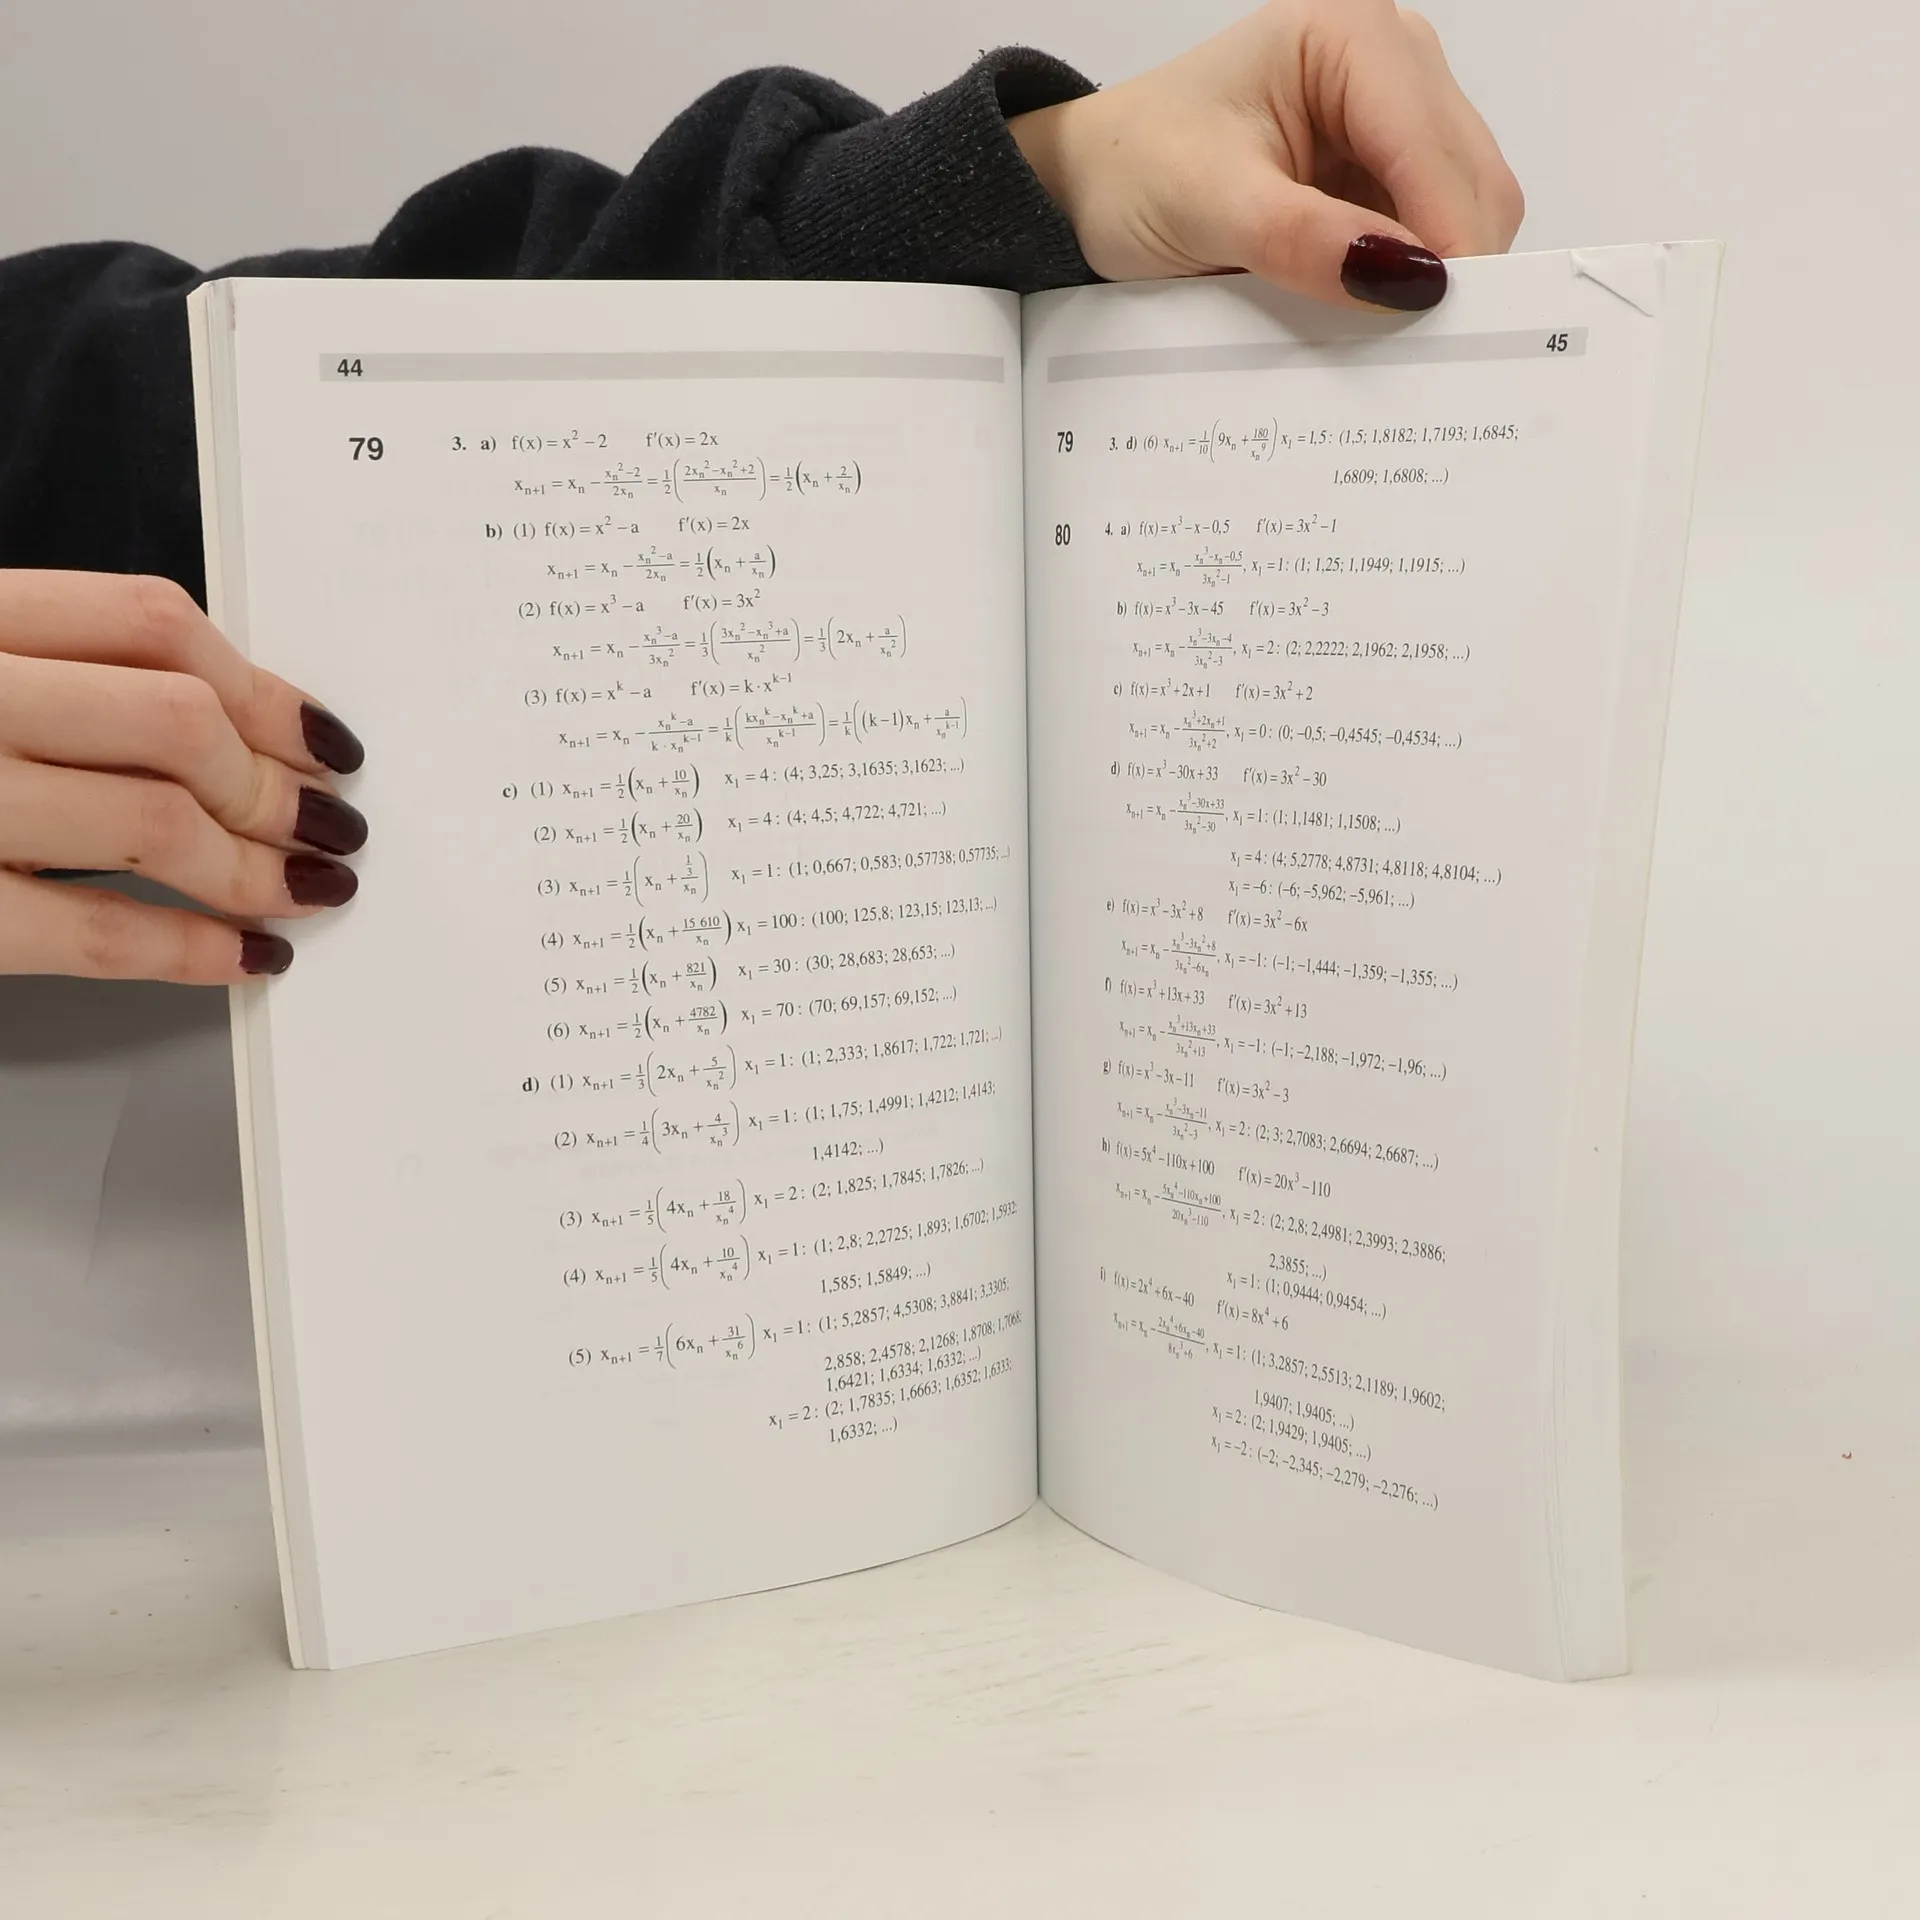 44
79 3. a) f(x) = x² – 2 f′(x) = 2x
xₙ₊₁ = xₙ – (xₙ²–2)/(2xₙ) = 1/2((2xₙ²–xₙ²+2)/xₙ) = 1/2(xₙ + 2/xₙ)
b) (1) f(x) = x² – a f′(x) = 2x
xₙ₊₁ = xₙ – (xₙ²–a)/(2xₙ) = 1/2(xₙ + a/xₙ)
(2) f(x) = x³ – a f′(x) = 3x²
xₙ₊₁ = xₙ – (xₙ³–a)/(3xₙ²) = 1/3((3xₙ²–xₙ³+a)/xₙ²) = 1/3(2xₙ + a/xₙ²)
(3) f(x) = xᵏ – a f′(x) = k · xᵏ⁻¹
xₙ₊₁ = xₙ – (xₙᵏ–a)/(k · xₙᵏ⁻¹) = 1/k((kxₙᵏ–xₙᵏ+a)/xₙᵏ⁻¹) = 1/k((k–1)xₙ + a/xₙᵏ⁻¹)
c) (1) xₙ₊₁ = 1/2(xₙ + 10/xₙ) x₁ = 4: (4; 3,25; 3,1635; 3,1623; ...)
(2) xₙ₊₁ = 1/2(xₙ + 20/xₙ) x₁ = 4: (4; 4,5; 4,722; 4,721; ...)
(3) xₙ₊₁ = 1/2(xₙ + (1/3)/xₙ) x₁ = 1: (1; 0,667; 0,583; 0,57738; 0,57735; ...)
(4) xₙ₊₁ = 1/2(xₙ + 15 610/xₙ) x₁ = 100: (100; 125,8; 123,15; 123,13; ...)
(5) xₙ₊₁ = 1/2(xₙ + 821/xₙ) x₁ = 30: (30; 28,683; 28,653; ...)
(6) xₙ₊₁ = 1/2(xₙ + 4782/xₙ) x₁ = 70: (70; 69,157; 69,152; ...)
d) (1) xₙ₊₁ = 1/3(2xₙ + 5/xₙ²) x₁ = 1: (1; 2,333; 1,8617; 1,722; 1,721; ...)
(2) xₙ₊₁ = 1/4(3xₙ + 4/xₙ³) x₁ = 1: (1; 1,75; 1,4991; 1,4212; 1,4143;
1,4142; ...)
(3) xₙ₊₁ = 1/5(4xₙ + 18/xₙ⁴) x₁ = 2: (2; 1,825; 1,7845; 1,7826; ...)
(4) xₙ₊₁ = 1/5(4xₙ + 10/xₙ⁴) x₁ = 1: (1; 2,8; 2,2725; 1,893; 1,6702; 1,5932;
1,585; 1,5849; ...)
(5) xₙ₊₁ = 1/7(6xₙ + 31/xₙ⁶) x₁ = 1: (1; 5,2857; 4,5308; 3,8841; 3,3305;
2,858; 2,4578; 2,1268; 1,8708; 1,7068;
1,6421; 1,6334; 1,6332; ...)
x₁ = 2: (2; 1,7835; 1,6663; 1,6352; 1,6333;
1,6332; ...)
45
79 3. d) (6) xₙ₊₁ = 1/10(9xₙ + 180/xₙ⁹) x₁ = 1,5: (1,5; 1,8182; 1,7193; 1,6845;
1,6809; 1,6808; ...)
80 4. a) f(x) = x³ – x – 0,5 f′(x) = 3x² – 1
xₙ₊₁ = xₙ – (xₙ³–xₙ–0,5)/(3xₙ²–1), x₁ = 1: (1; 1,25; 1,1949; 1,1915; ...)
b) f(x) = x³ – 3x – 45 f′(x) = 3x² – 3
xₙ₊₁ = xₙ – (xₙ³–3xₙ–4)/(3xₙ²–3), x₁ = 2: (2; 2,2222; 2,1962; 2,1958; ...)
c) f(x) = x³ + 2x + 1 f′(x) = 3x² + 2
xₙ₊₁ = xₙ – (xₙ³+2xₙ+1)/(3xₙ²+2), x₁ = 0: (0; –0,5; –0,4545; –0,4534; ...)
d) f(x) = x³ – 30x + 33 f′(x) = 3x² – 30
xₙ₊₁ = xₙ – (xₙ³–30x+33)/(3xₙ²–30), x₁ = 1: (1; 1,1481; 1,1508; ...)
x₁ = 4: (4; 5,2778; 4,8731; 4,8118; 4,8104; ...)
x₁ = –6: (–6; –5,962; –5,961; ...)
e) f(x) = x³ – 3x² + 8 f′(x) = 3x² – 6x
xₙ₊₁ = xₙ – (xₙ³–3xₙ²+8)/(3xₙ²–6xₙ), x₁ = –1: (–1; –1,444; –1,359; –1,355; ...)
f) f(x) = x³ + 13x + 33 f′(x) = 3x² + 13
xₙ₊₁ = xₙ – (xₙ³+13xₙ+33)/(3xₙ²+13), x₁ = –1: (–1; –2,188; –1,972; –1,96; ...)
g) f(x) = x³ – 3x – 11 f′(x) = 3x² – 3
xₙ₊₁ = xₙ – (xₙ³–3xₙ–11)/(3xₙ²–3), x₁ = 2: (2; 3; 2,7083; 2,6694; 2,6687; ...)
h) f(x) = 5x⁴ – 110x + 100 f′(x) = 20x³ – 110
xₙ₊₁ = xₙ – (5xₙ⁴–110xₙ+100)/(20xₙ³–110), x₁ = 2: (2; 2,8; 2,4981; 2,3993; 2,3886;
2,3855; ...)
x₁ = 1: (1; 0,9444; 0,9454; ...)
i) f(x) = 2x⁴ + 6x – 40 f′(x) = 8x⁴ + 6
xₙ₊₁ = xₙ – (2xₙ⁴+6xₙ–40)/(8xₙ³+6), x₁ = 1: (1; 3,2857; 2,5513; 2,1189; 1,9602;
1,9407; 1,9405; ...)
x₁ = 2: (2; 1,9429; 1,9405; ...)
x₁ = –2: (–2; –2,345; –2,279; –2,276; ...)